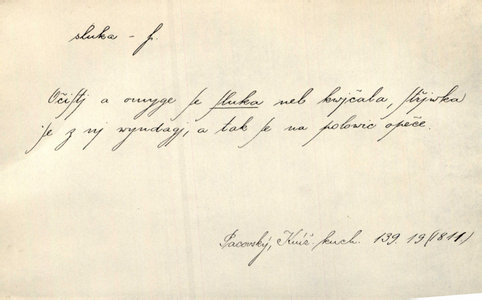 sluka – f.
Očistj a omyge se sluka neb kwjčala, střjwka
se z nj wyndagj, a tak se na polowic opeče.
Pacovský, Kniž. kuch. 139. 19 (1811)